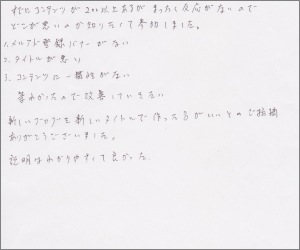 秋にコンテンツが200以上あるが まったく反応がないので
どこが悪いのか知りたくて参加しました。
1. メルアド登録バナーがない
2. タイトルが悪い
3. コンテンツに一貫性がない
等わかったので改善していきたい
新しいブログを新しいタイトルで作った方がいいとのご指摘
ありがとうございました。
説明はわかりやすくて良かった